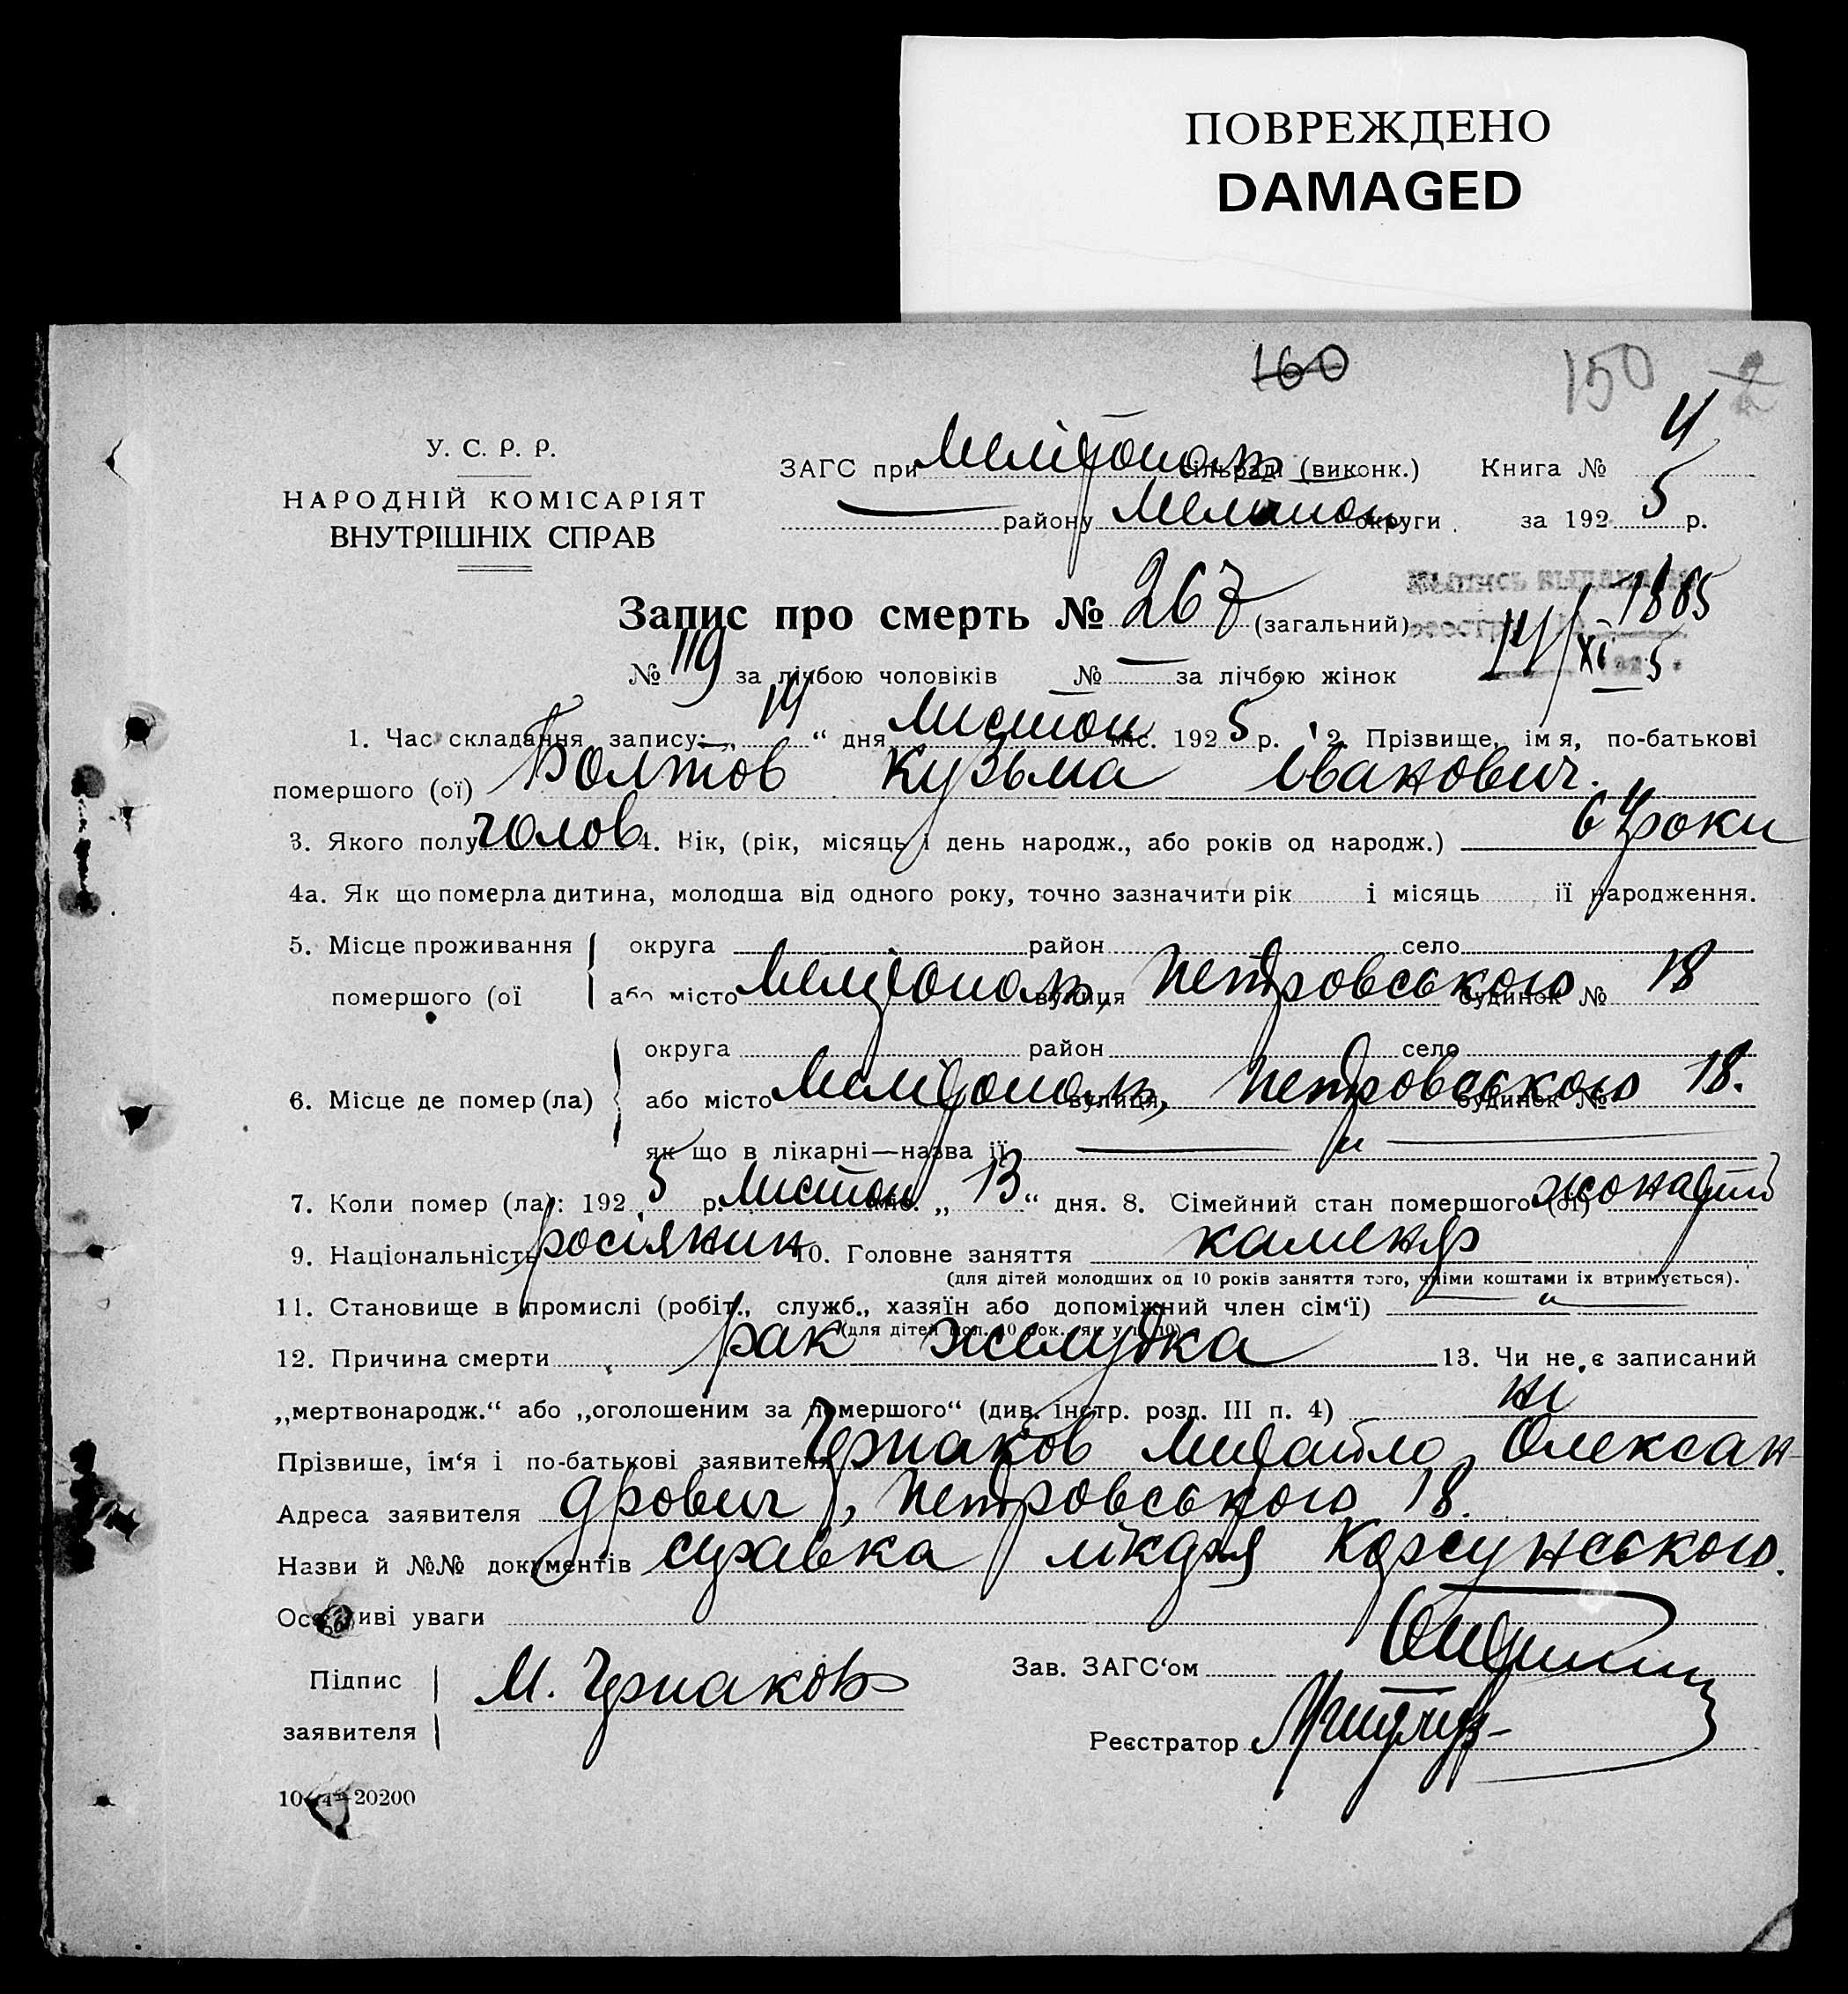 ПОВРЕЖДЕНО
DAMAGED
160
150
У. С. Р. Р.
НАРОДНІЙ КОМІСАРІЯТ
ВНУТРІШНІХ СПРАВ
ЗАГС при Мелітополь сільраді (виконк.) Книга № 4
— району Мелітоп округи за 192 5 р.
Запис про смерть № 267 (загальний)
выпись выдана 1885
14/XI 5
№ 119 за лічбою чоловіків № — за лічбою жінок
1. Час складання запису: „ 14 “ дня листоп міс. 192 5 р. 2. Прізвище, імя, по-батькові
помершого (ої) Болтов Кузьма Іванович.
3. Якого полу чолов 4. Вік, (рік, місяць і день народж., або років од народж.) 64 роки
4а. Як що померла дитина, молодша від одного року, точно зазначити рік і місяць її народження.
5. Місце проживання помершого (ої округа район село
або місто Мелітополь, вулиця Петровського будинок № 18
6. Місце де помер (ла) округа район село
або місто Мелітополь, вулиця Петровського будинок № 18.
як що в лікарні—назва її — „ —
7. Коли помер (ла): 192 5 р. листоп міс. „ 13 “ дня. 8. Сімейний стан помершого (ої) жонатий
9. Національність росіянин 10. Головне заняття каменяр
(для дітей молодших од 10 років заняття того, чиїми коштами їх втримується).
11. Становище в промислі (робіт., служб., хазяїн або допоміжний член сім‘ї) — „ —
(для дітей мол. 10 рок. як у п. 10)
12. Причина смерти рак желудка 13. Чи не є записаний
„мертвонародж.“ або „оголошеним за помершого“ (див. інстр. розд. III п. 4) ні
Прізвище, ім‘я і по-батькові заявителя Чурпаков Михайло Олексан-
Адреса заявителя дрович, Петровського 18.
Назви й №№ документів справка лікаря Корсунського.
Особливі уваги
Підпис заявителя М. Чурпаков
Зав. ЗАГС‘ом
Реєстратор
20200